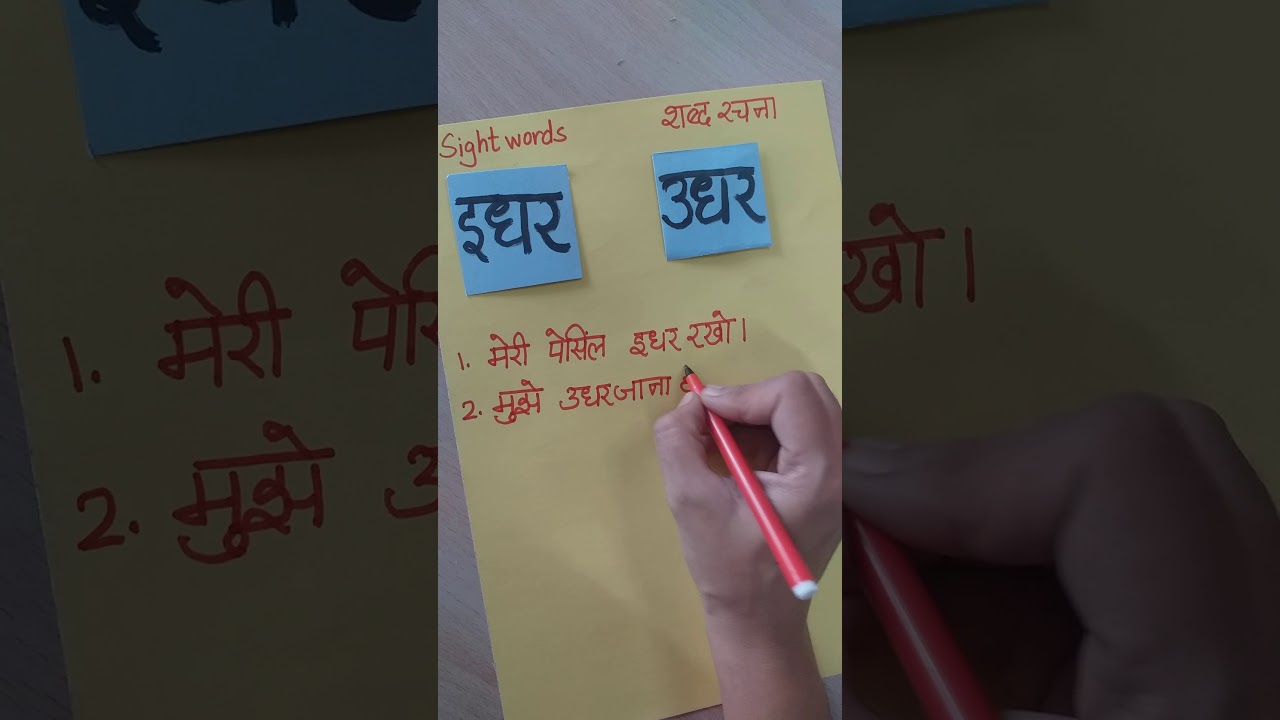 Sight words शब्द रचना
इधर उधर
1. मेरी पेसिंल इधर रखो।
2. मुझे उधर जाना